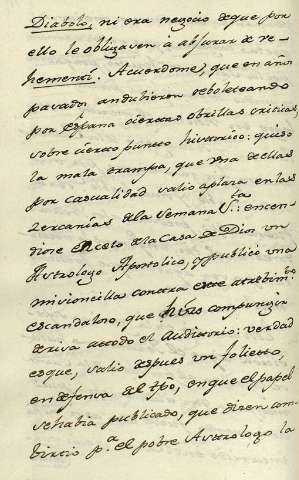 Diabolo, ni era negocio de que por
ello le obligaven à abjurar de ve-
hementi. Acuerdome, que en años
pasados andubieron reboleteando
por España ciertas obrillas criticas,
sobre cierto punto historico: quiso
la mala trampa, que una de ellas
por casualidad salio a plaza en las
Zercanias de la Semana S.ta: encen-
diose el celo de la Casa de Dios un
Astrologo Apostolico, y publicó una
misioncilla contra este atrebim.to
escandaloso, que hizo compungir
de risa a todo el Auditorio: verdad
es que, salio despues un folleto,
en defensa del tpõ, en que el papel
se habia publicado, que dicen com-
p.a el pobre Astrologo la